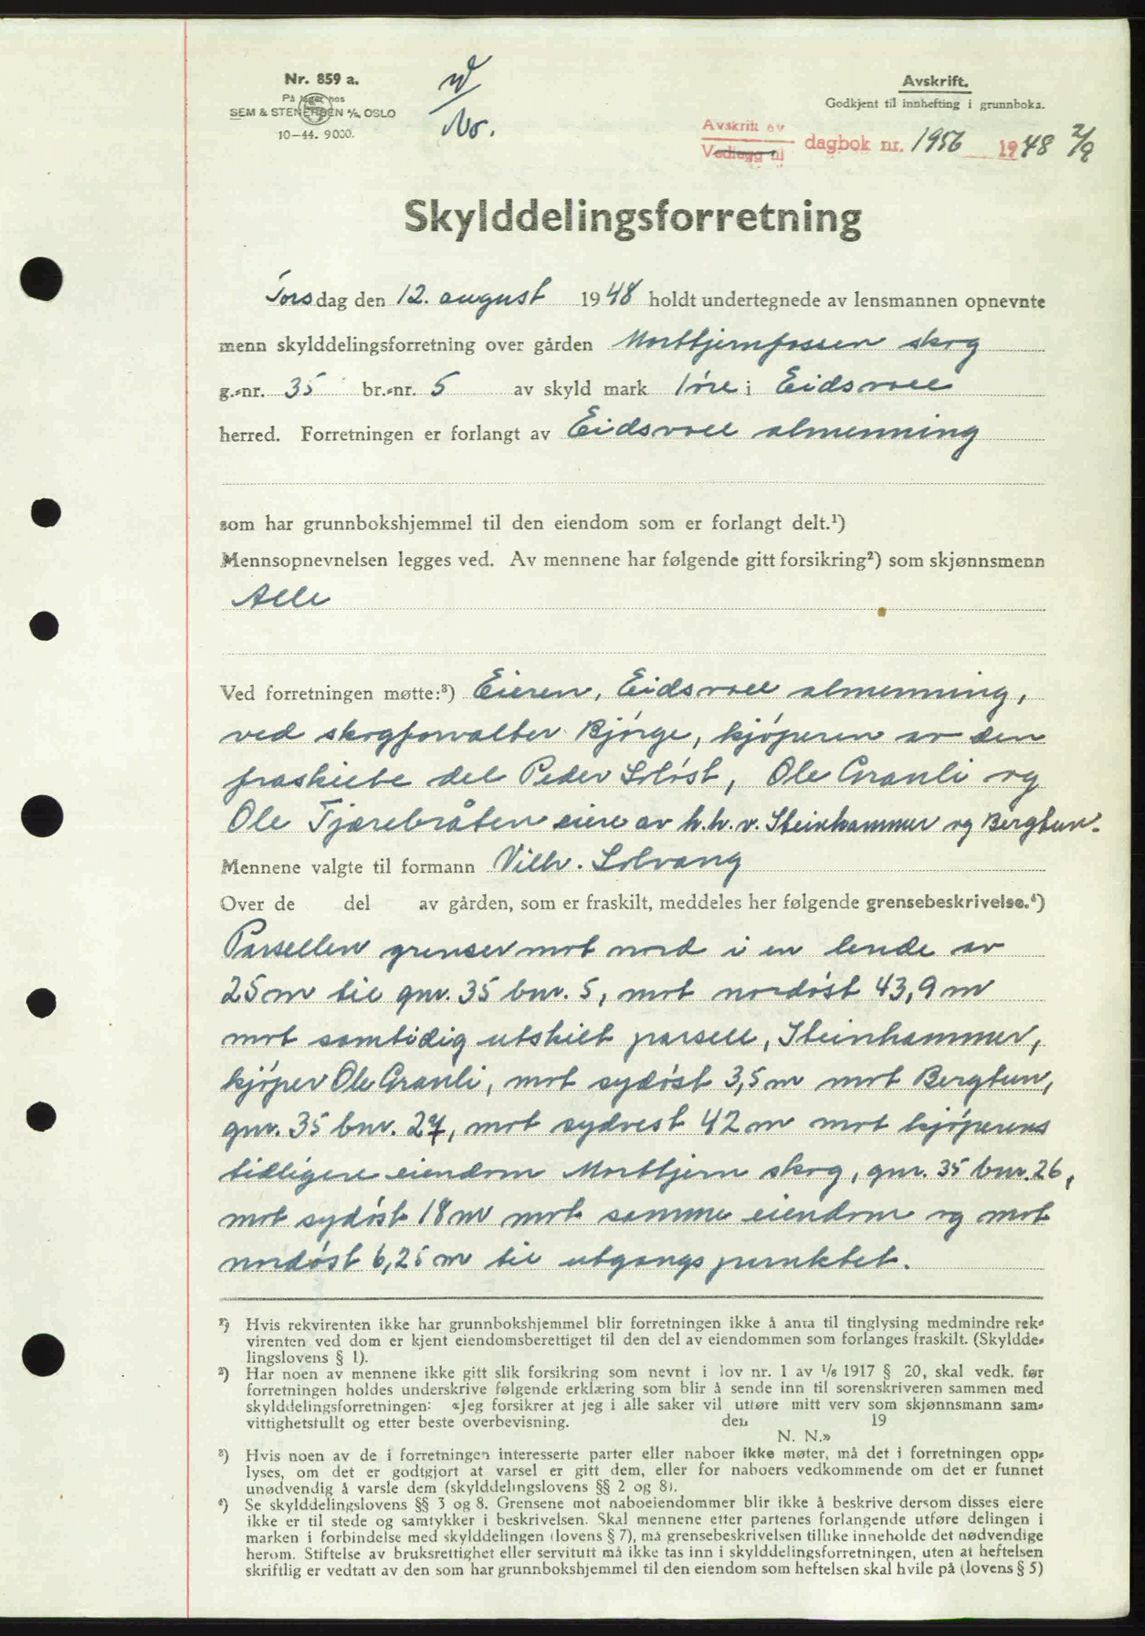 Nr. 859 a.
På lager hos
SEM & STENERSEN A/S, OSLO
10-44. 9000.
No.
Avskrift.
Godkjent til innhefting i grunnboka.
Avskrift av
Vedlegg til dagbok nr. 1956 1948 2/9
Skylddelingsforretning
Torsdag den 12. august 1948 holdt undertegnede av lensmannen opnevnte
menn skylddelingsforretning over gården Morttjernfossen skog
g.-nr. 35 br.-nr. 5 av skyld mark 1 øre i Eidsvoll
herred. Forretningen er forlangt av Eidsvoll almenning
som har grunnbokshjemmel til den eiendom som er forlangt delt.¹)
Mennsopnevnelsen legges ved. Av mennene har følgende gitt forsikring²) som skjønnsmenn
Alle
Ved forretningen møtte:³) Eieren, Eidsvoll almenning,
ved skogforvalter Bjørge, kjøperen av den
fraskilte del Peder Soløst, Ole Granli og
Ole Tjærebråten eiere av h.h.v. Steinhammer og Bergtun.
Mennene valgte til formann Vilh. Solvang
Over de del av gården, som er fraskilt, meddeles her følgende grensebeskrivelse.⁴)
Parsellen grenser mot nord i en lende av
25 m til gnr. 35 bnr. 5, mot nordøst 43,9 m
mot samtidig utskilt parsell, Steinhammer,
kjøper Ole Granli, mot sydøst 3,5 m mot Bergtun,
gnr. 35 bnr. 27, mot sydvest 42 m mot kjøperens
tidligere eiendom Morttjern skog, gnr. 35 bnr. 26,
mot sydøst 18 m mot samme eiendom og mot
nordøst 6,25 m til utgangspunktet.
¹) Hvis rekvirenten ikke har grunnbokshjemmel blir forretningen ikke å anta til tinglysing medmindre rek-
virenten ved dom er kjent eiendomsberettiget til den del av eiendommen som forlanges fraskilt. (Skyldde-
lingslovens § 1).
²) Har noen av mennene ikke gitt slik forsikring som nevnt i lov nr. 1 av 1/6 1917 § 20, skal vedk. før
forretningen holdes underskrive følgende erklæring som blir å sende inn til sorenskriveren sammen med
skylddelingsforretningen: «Jeg forsikrer at jeg i alle saker vil utføre mitt verv som skjønnsmann sam-
vittighetsfullt og etter beste overbevisning. den 19
N. N.»
³) Hvis noen av de i forretningen interesserte parter eller naboer ikke møter, må det i forretningen opp-
lyses, om det er godtgjort at varsel er gitt dem, eller for naboers vedkommende om det er funnet
unødvendig å varsle dem (skylddelingslovens §§ 2 og 8).
⁴) Se skylddelingslovens §§ 3 og 8. Grensene mot naboeiendommer blir ikke å beskrive dersom disses eiere
ikke er til stede og samtykker i beskrivelsen. Skal mennene etter partenes forlangende utføre delingen i
marken i forbindelse med skylddelingen (lovens § 7), må grensebeskrivelsen tillike inneholde det nødvendige
herom. Stiftelse av bruksrettighet eller servitutt må ikke tas inn i skylddelingsforretningen, uten at heftelsen
skriftlig er vedtatt av den som har grunnbokshjemmel til den eiendom som heftelsen skal hvile på (lovens § 5)